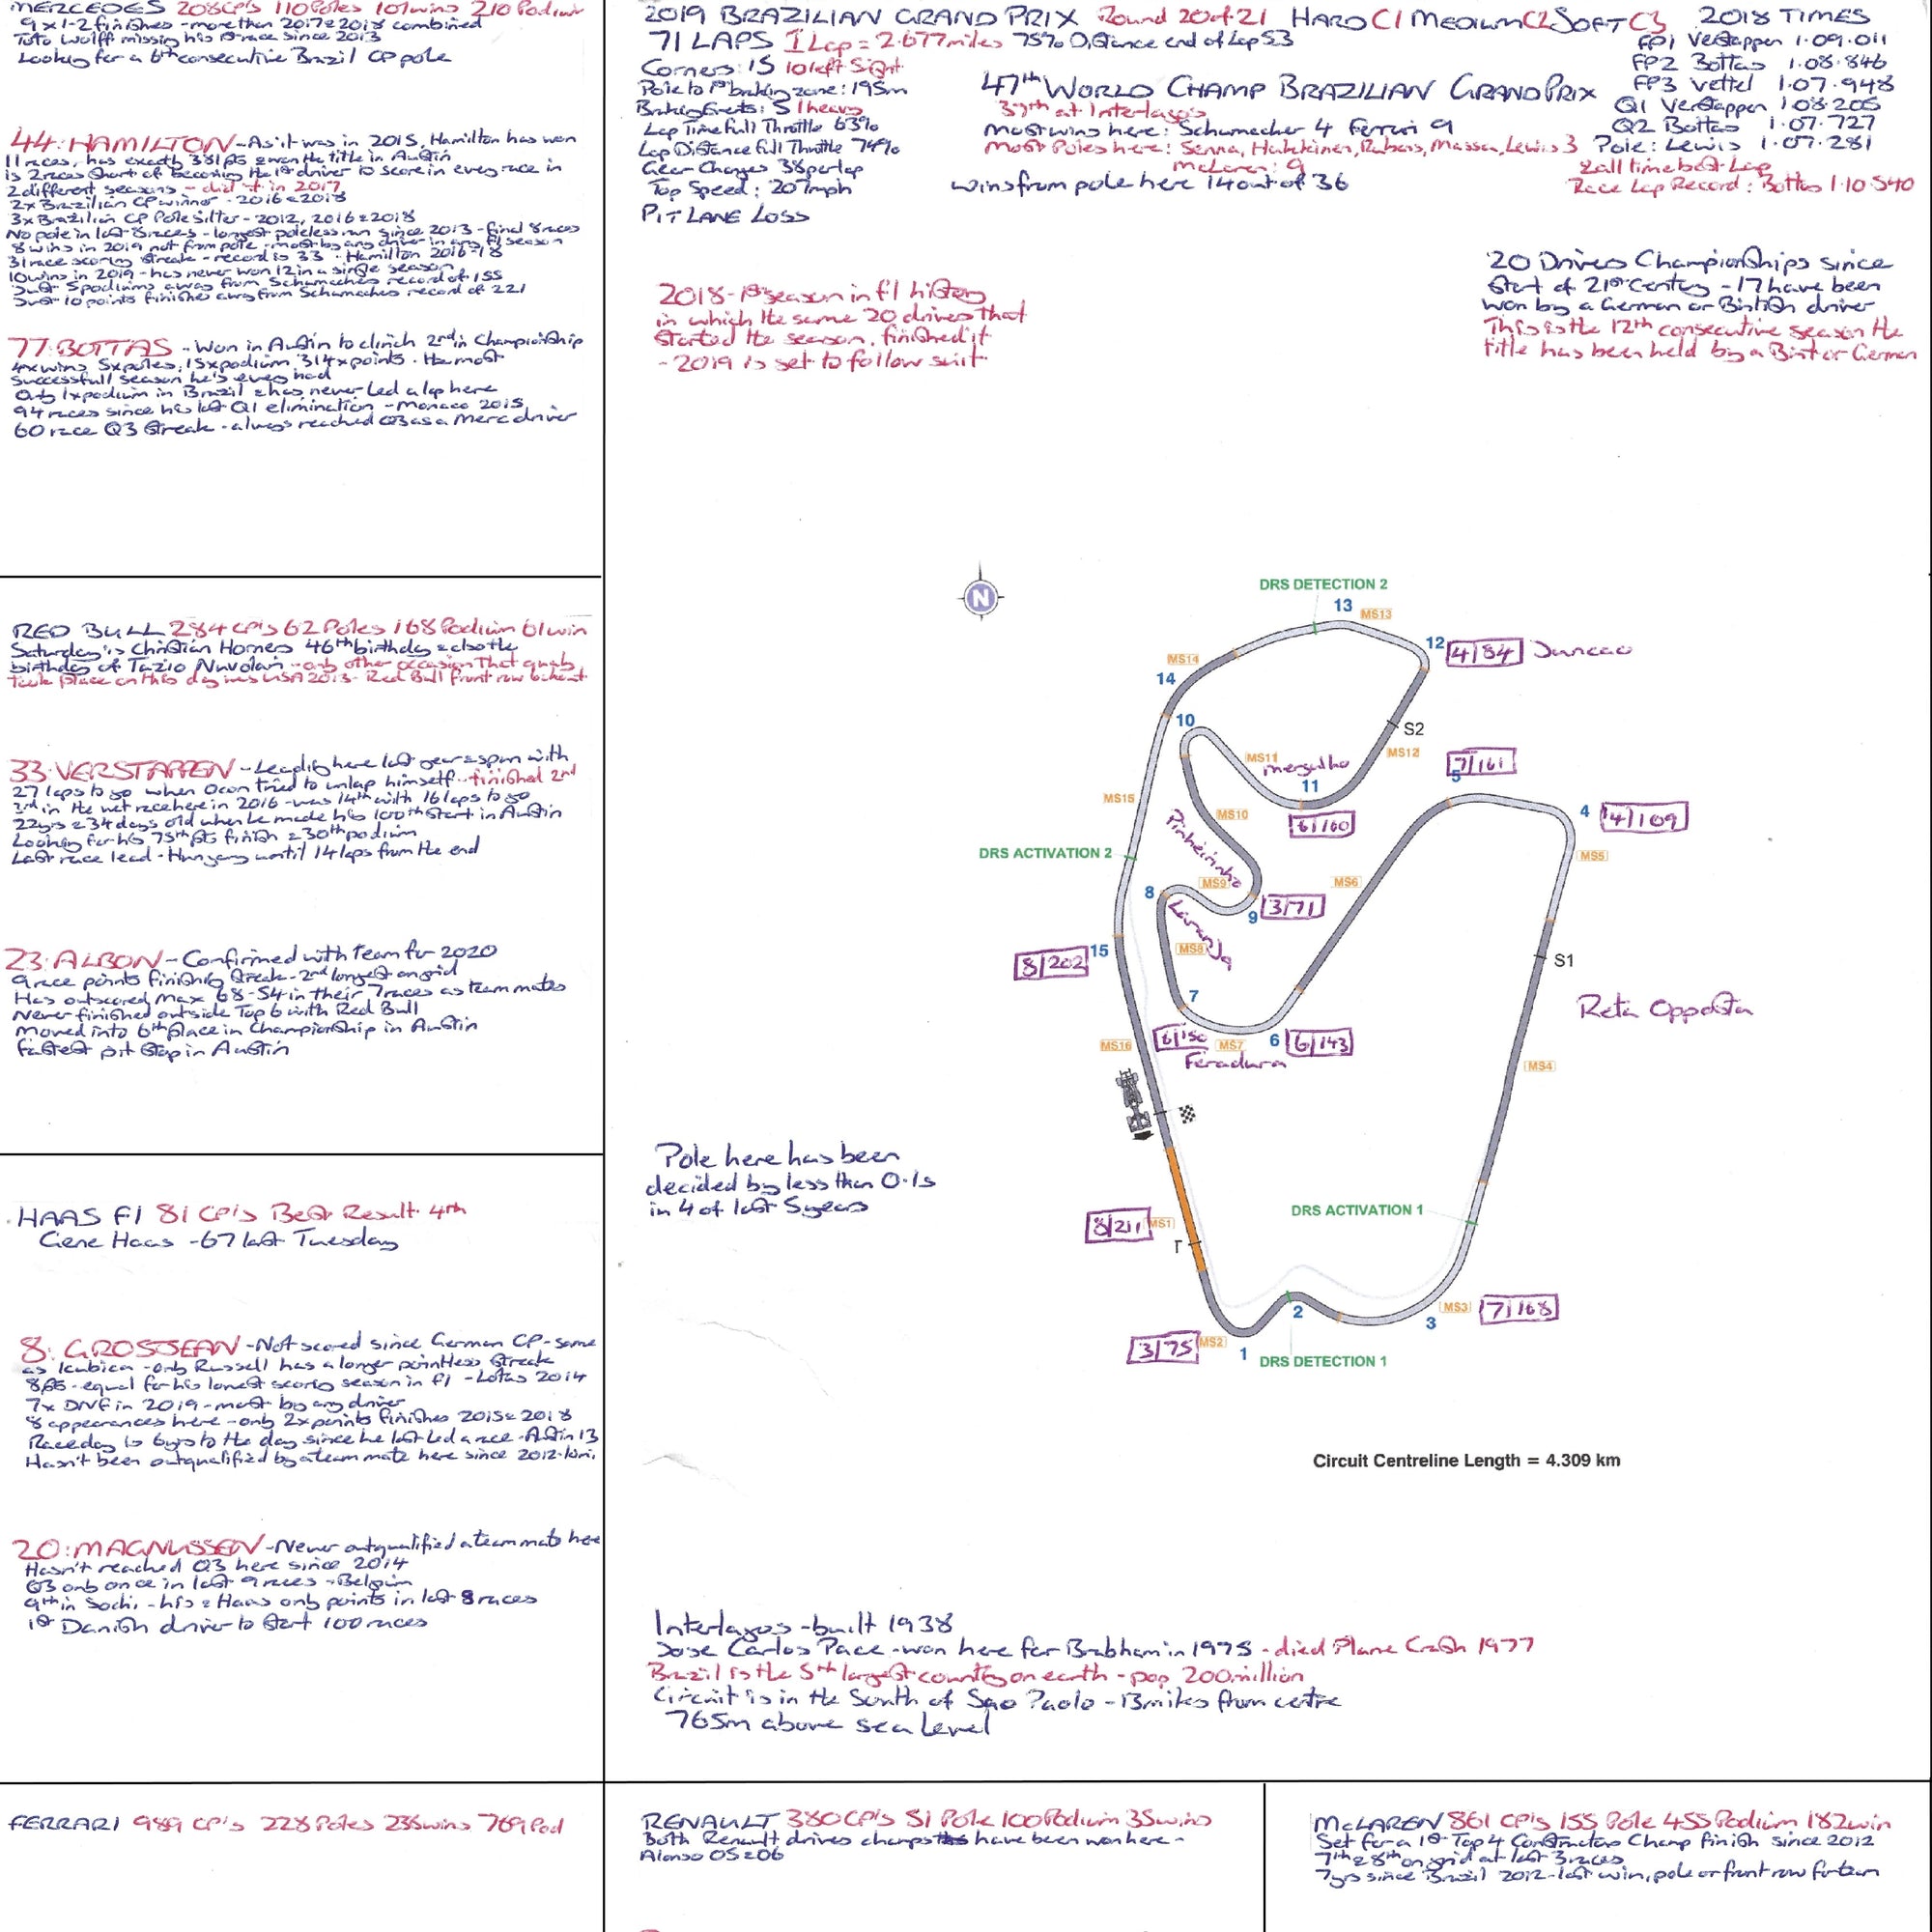 MERCEDES 208GP's 110Poles 101wins 210 Podium
9x1-2 finishes - more than 2017&2018 combined
Toto Wolff missing his 1st race since 2013
Looking for a 6th consecutive Brazil GP pole
44: HAMILTON - As it was in 2015, Hamilton has won
11 races, has exactly 381pts & won the title in Austin
is 2 races short of becoming the 1st driver to score in every race in
2 different seasons - did it in 2017
2x Brazilian GP winner - 2016&2018
3x Brazilian GP Pole Sitter - 2012, 2016&2018
No pole in last 8 races - longest poleless run since 2013 - final 8 races
8 wins in 2019 not from pole - most by any driver in any F1 season
31 race scoring streak - record is 33 - Hamilton 2016-18
10wins in 2019 - has never won 12 in a single season
Just 5podiums away from Schumachers record of 155
Just 10 points finishes away from Schumachers record of 221
77: BOTTAS - Won in Austin to clinch 2nd in Championship
4xwins, 5xpoles, 15xpodium, 314xpoints. The most
successfull season he's ever had
Only 1xpodium in Brazil & has never led a lap here
94 races since his last Q1 elimination - Monaco 2015
60 race Q3 streak - always reached Q3 as a Merc driver
2019 BRAZILIAN GRAND PRIX Round 20 of 21 HARD C1 MEDIUM C2 SOFT C3
71 LAPS 1 Lap = 2.677miles 75% Distance end of Lap 53
Corners: 15 10 left 5 right
Pole to 1st braking zone: 195m
Braking Events: 5 1 heavy
Lap Time Full Throttle 63%
Lap Distance Full Throttle 74%
Gear Changes 38 per lap
Top Speed: 207mph
PIT LANE LOSS
47th WORLD CHAMP BRAZILIAN GRAND PRIX
37th at Interlagos
Most wins here: Schumacher 4 Ferrari 9
Most Poles here: Senna, Hakkinen, Rubens, Massa, Lewis 3
McLaren: 9
wins from pole here 14 out of 36
2018 TIMES
FP1 Verstappen 1.09.011
FP2 Bottas 1.08.846
FP3 Vettel 1.07.948
Q1 Verstappen 1.08.205
Q2 Bottas 1.07.727
Pole: Lewis 1.07.281
& all time best Lap
Race Lap Record: Bottas 1.10.540
2018 - 1st season in F1 history
in which the same 20 drivers that
started the season, finished it
- 2019 is set to follow suit
20 Drivers Championships since
start of 21st Century - 17 have been
won by a German or British driver
This is the 12th consecutive season the
title has been held by a Brit or German
RED BULL 284 GP's 62 Poles 168 Podium 61 win
Saturday is Christian Horners 46th birthday & also the
birthday of Tazio Nuvolari - only other occasion that qualy
took place on this day was USA 2013 - Red Bull front row lockout
33: VERSTAPPEN - Leading here last year & spun with
27 laps to go when Ocon tried to unlap himself - finished 2nd
3rd in the wet race here in 2016 - was 14th with 16 laps to go
22yrs & 34 days old when he made his 100th start in Austin
Looking for his 75th pts finish & 30th podium
Last race lead - Hungary until 14 laps from the end
23: ALBON - Confirmed with team for 2020
9 race points finishing streak - 2nd longest on grid
Has outscored Max 68-54 in their 7 races as team mates
Never finished outside Top 6 with Red Bull
Moved into 6th place in Championship in Austin
fastest pit stop in Austin
N
DRS DETECTION 2
13 MS13
12 4/84 Juncao
MS14
14
10
S2
MS11 Mergulho
MS12
7/161
5
11
6/160
4 4/109
MS15
MS10
Pinheirinho
DRS ACTIVATION 2
MS5
MS6
8 MS9
9 3/71
Laranja
MS8
15
8/202
S1
7
Reta Opposta
6/150
MS7 6 6/143
Feradura
MS16
MS4
Pole here has been
decided by less than 0.1s
in 4 of last 5 years
DRS ACTIVATION 1
8/211 MS1
T
2
MS3 7/168
3
3/75 MS2
1 DRS DETECTION 1
Circuit Centreline Length = 4.309 km
HAAS F1 81 GP's Best Result 4th
Gene Haas - 67 last Tuesday
8: GROSJEAN - Not scored since German GP - same
as Kubica - only Russell has a longer pointless streak
8pts - equal for his lowest scoring season in F1 - Lotus 2014
7x DNF in 2019 - most by any driver
8 appearances here - only 2xpoints finishes 2015&2018
Raceday is 6yrs to the day since he last led a race - Austin 13
Hasn't been outqualified by a team mate here since 2012 - Kimi
20: MAGNUSSEN - Never outqualified a team mate here
Hasn't reached Q3 here since 2014
Q3 only once in last 9 races - Belgium
9th in Sochi - his & Haas only points in last 8 races
1st Danish driver to start 100 races
Interlagos - built 1938
Jose Carlos Pace - won here for Brabham in 1975 - died Plane Crash 1977
Brazil is the 5th largest country on earth - pop 200million
Circuit is in the South of Sao Paolo - 13 miles from centre
765m above sea level
FERRARI 989 GP's 228 Poles 238wins 769 Pod
RENAULT 380 GP's 51 Pole 100 Podium 35 wins
Both Renault drivers champs have been won here -
Alonso 05&06
McLAREN 861 GP's 155 Pole 485 Podium 182 win
Set for a 1st Top 4 Constructors Champ finish since 2012
7th & 8th on grid at last 3 races
7yrs since Brazil 2012 - last win, pole or front row for team